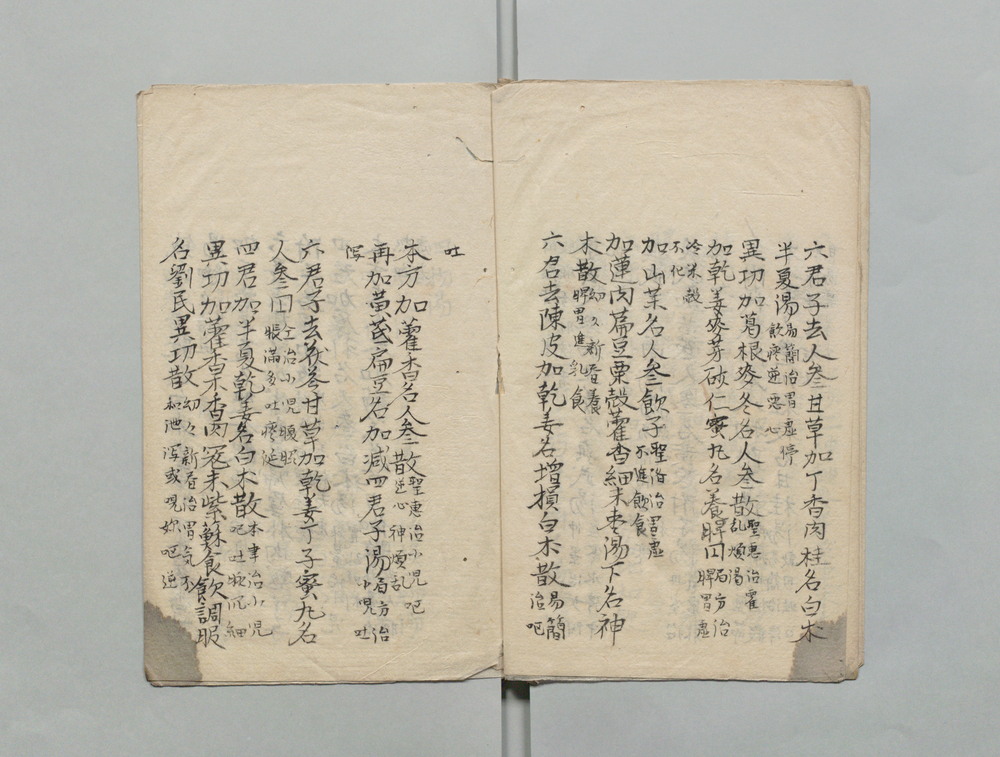 六君子去人叁甘草加丁香肉桂名白朮
半夏湯易簡治胃虛停飲痰逆惡心
異功加葛根麥冬名人叁散聖惠治霍乱煩渴
加乾姜麥芽砂仁蜜丸名養脾囙局方治脾胃虛
冷米穀不化
加山藥名人叁飲子聖治治胃虛不進飲食
加蓮肉萹豆粟殼藿香細末枣湯下名神
朮散幼久新香養脾胃進乳食
六君去陳皮加乾姜名增損白朮散易簡治吧
吐
本方加藿香名人叁散聖惠治小児吧逆心神煩乱
再加黃芪扁豆名加减四君子湯局方治小児吐
泻
六君子去茯苓甘草加乾姜丁子蜜丸名
人叁囙仝治小児腹脹脹滿多吐痰涎
四君加半夏乾姜名白朮散本事治小児吧吐脉沉細
異功加藿香木香肉寇末紫蘇飲調服
名劉氏異功散幼々新香治胃氣不和泄泻或現妳吧逆